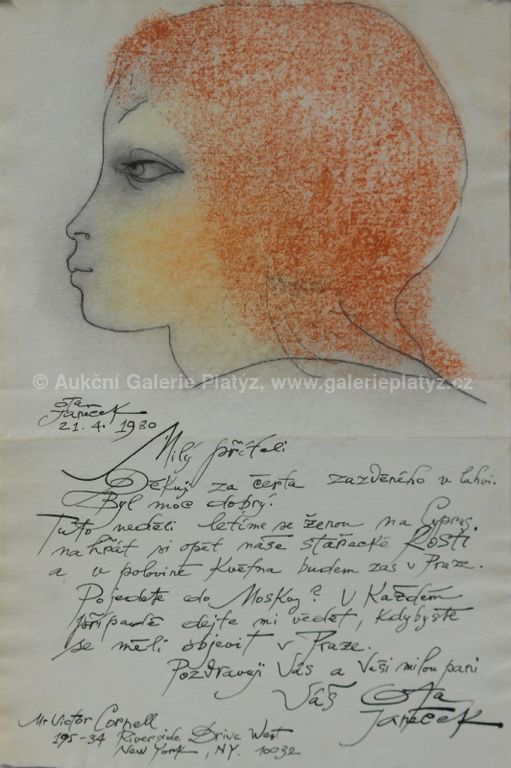 © Aukční Galerie Platyz, www.galerieplatyz.cz
Ota
Janeček
21. 4. 1980
Milý příteli
Děkuji za čerta zazděného v lahvi.
Byl moc dobrý.
Tuto neděli letíme se ženou na Cyprus,
nahřát si opět naše stařecké kosti
a v polovině Května budem zas v Praze.
Pojedete do Moskvy? V každém
případě dejte mi vědět, kdybyste
se měli objevit v Praze.
Pozdravuji Vás a Vaši milou paní
Váš Ota
Janeček
Mr Victor Cornell
195-34 Riverside Drive West
New York, NY. 10032